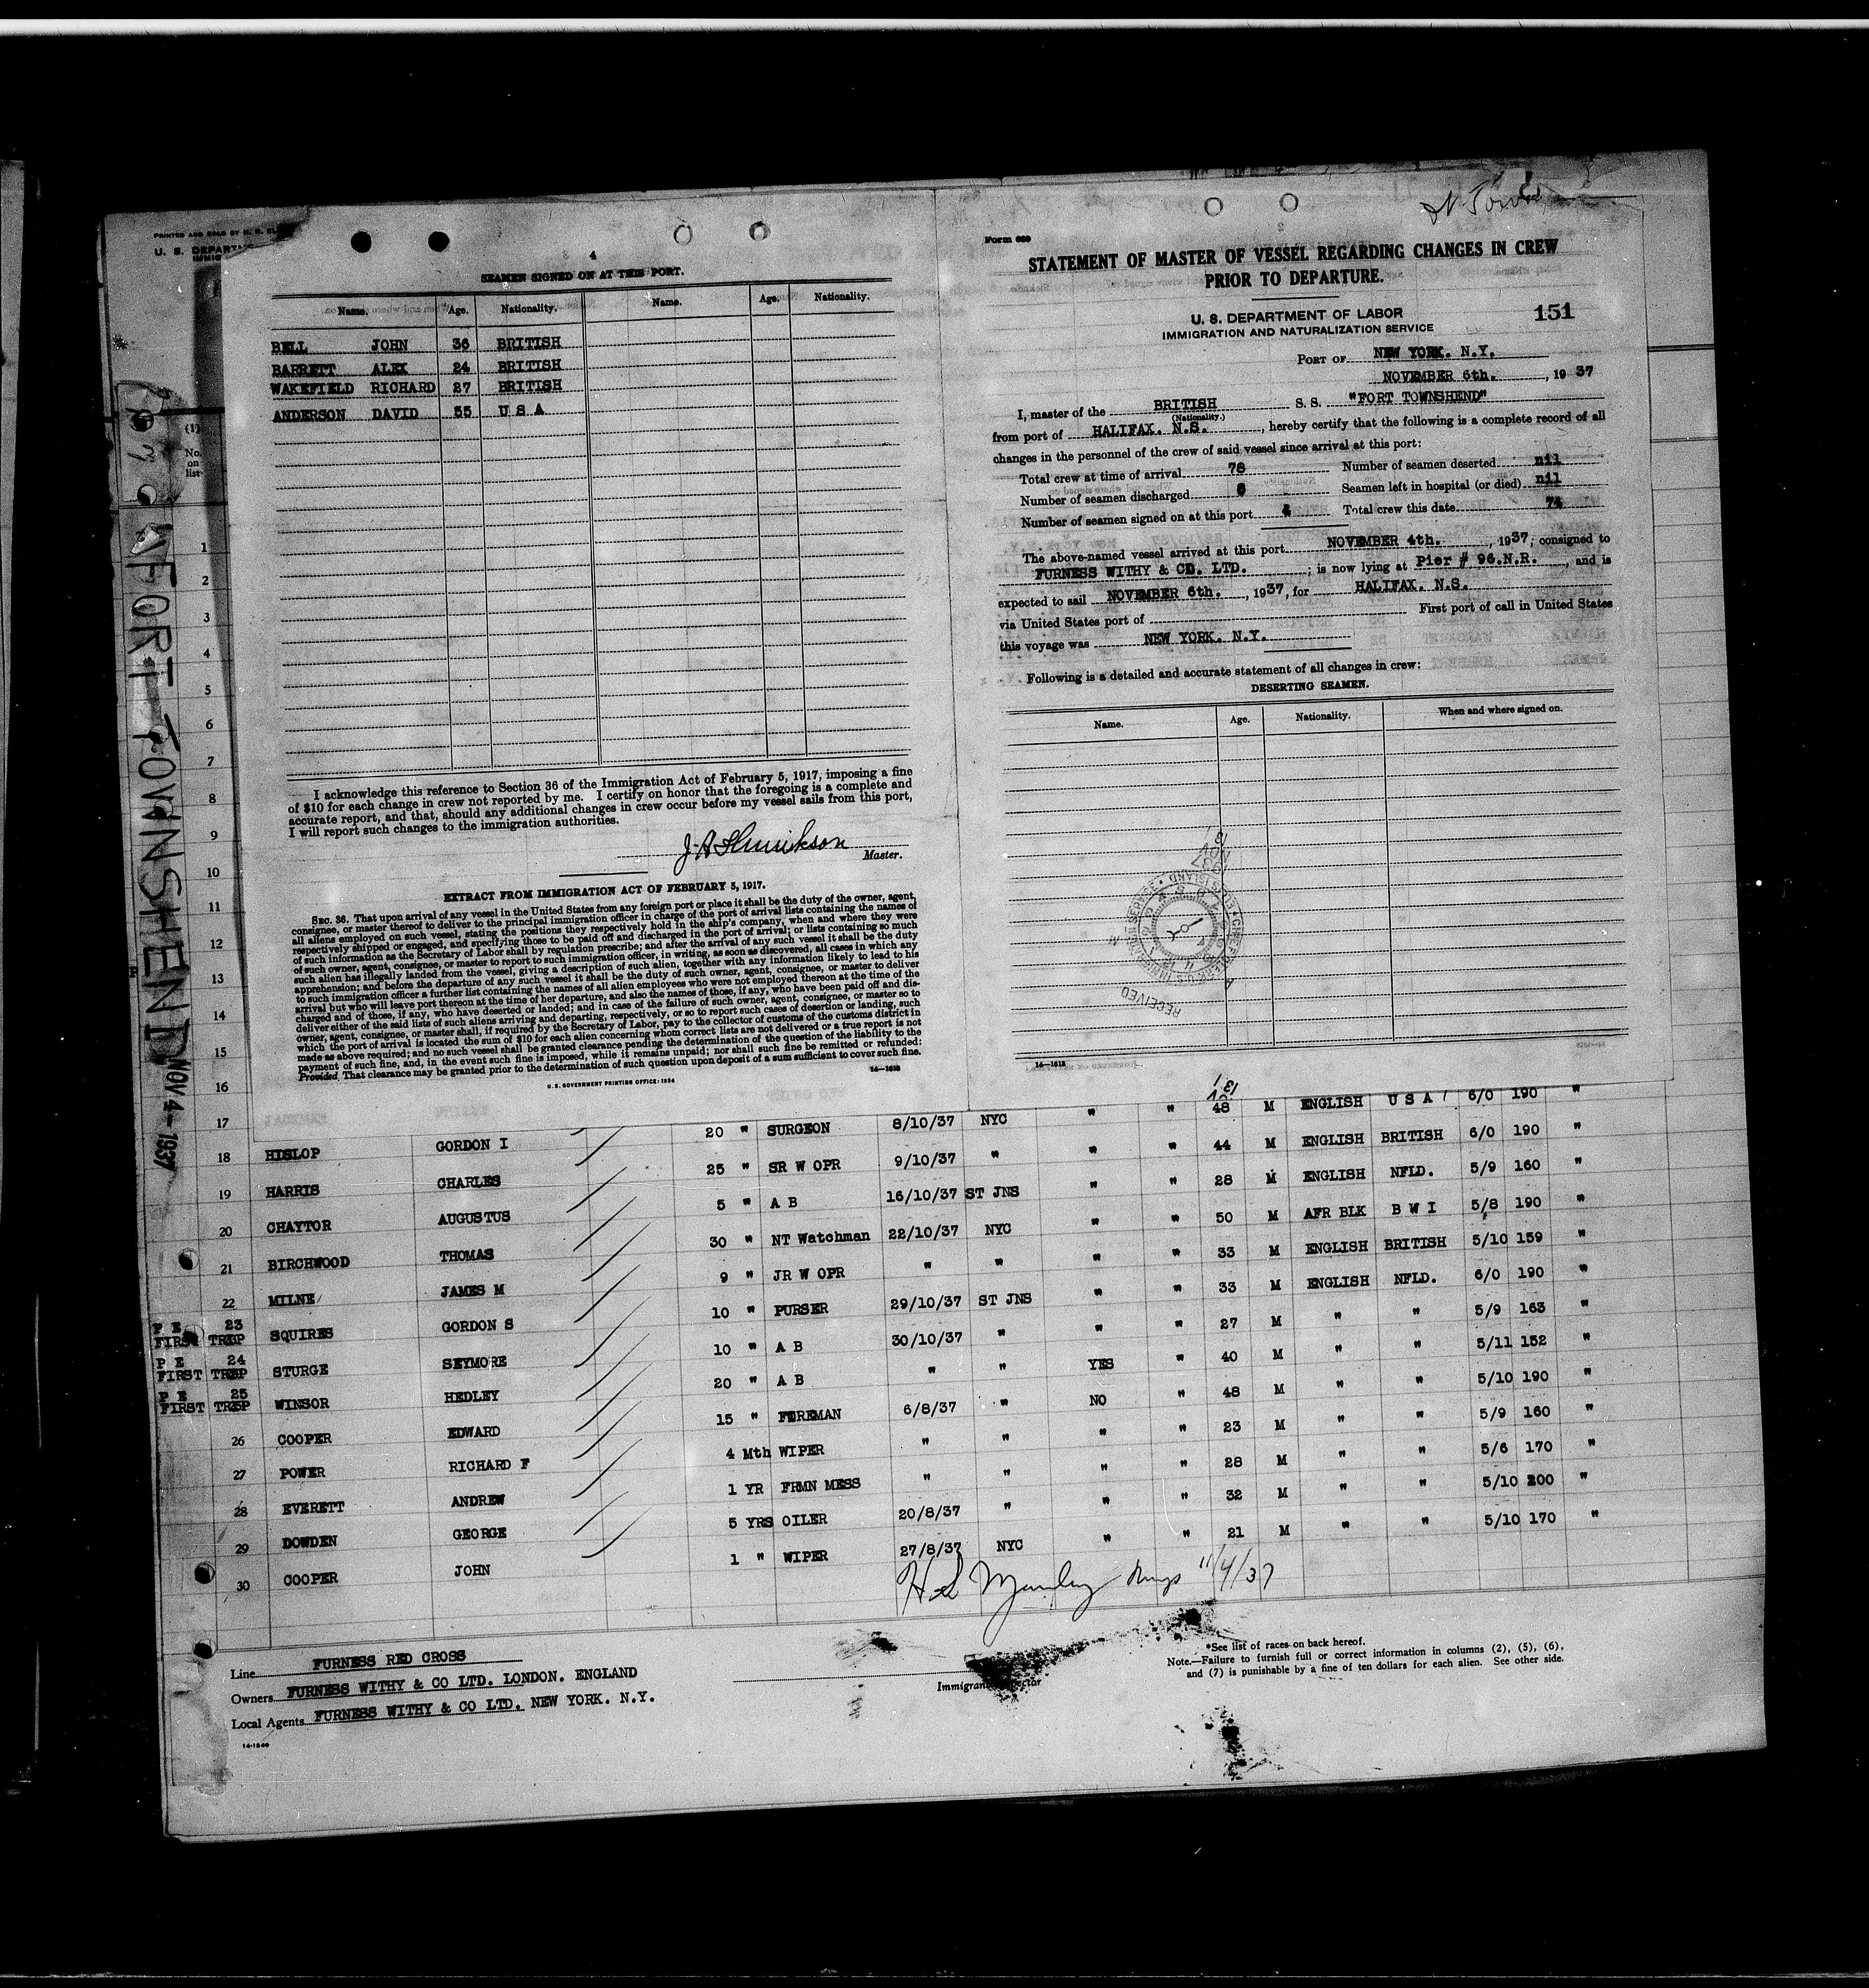 PRINTED AND SOLD BY
U. S. DEPART
IMMIG
(1)
No.
on
list
FORT TOWNSHEND NOV 4- 1937
4
SEAMEN SIGNED ON AT THIS PORT.
Name. Age. Nationality. Name. Age. Nationality.
BELL JOHN 36 BRITISH
BARRETT ALEX 24 BRITISH
WAKEFIELD RICHARD 27 BRITISH
ANDERSON DAVID 55 U S A
I acknowledge this reference to Section 36 of the Immigration Act of February 5, 1917, imposing a fine
of $10 for each change in crew not reported by me. I certify on honor that the foregoing is a complete and
accurate report, and that, should any additional changes in crew occur before my vessel sails from this port,
I will report such changes to the immigration authorities.
Master.
EXTRACT FROM IMMIGRATION ACT OF FEBRUARY 5, 1917.
SEC. 36. That upon arrival of any vessel in the United States from any foreign port or place it shall be the duty of the owner, agent,
consignee, or master thereof to deliver to the principal immigration officer in charge of the port of arrival lists containing the names of
all aliens employed on such vessel, stating the positions they respectively hold in the ship's company, when and where they were
respectively shipped or engaged, and specifying those to be paid off and discharged in the port of arrival; or lists containing so much
of such information as the Secretary of Labor shall by regulation prescribe; and after the arrival of any such vessel it shall be the duty
of such owner, agent, consignee, or master to report to such immigration officer, in writing, as soon as discovered, all cases in which any
such alien has illegally landed from the vessel, giving a description of such alien, together with any information likely to lead to his
apprehension; and before the departure of any such vessel it shall be the duty of such owner, agent, consignee, or master to deliver
to such immigration officer a further list containing the names of all alien employees who were not employed thereon at the time of the
arrival but who will leave port thereon at the time of her departure, and also the names of those, if any, who have been paid off and dis-
charged and of those, if any, who have deserted or landed; and in case of the failure of such owner, agent, consignee, or master so to
deliver either of the said lists of such aliens arriving and departing, respectively, or so to report such cases of desertion or landing, such
owner, agent, consignee, or master shall, if required by the Secretary of Labor, pay to the collector of customs of the customs district in
which the port of arrival is located the sum of $10 for each alien concerning whom correct lists are not delivered or a true report is not
made as above required; and no such vessel shall be granted clearance pending the determination of the question of the liability to the
payment of such fine, and, in the event such fine is imposed, while it remains unpaid; nor shall such fine be remitted or refunded:
Provided That clearance may be granted prior to the determination of such question upon deposit of a sum sufficient to cover such fine.
U. S. GOVERNMENT PRINTING OFFICE: 1934 14—1613
Form 689
STATEMENT OF MASTER OF VESSEL REGARDING CHANGES IN CREW
PRIOR TO DEPARTURE.
U. S. DEPARTMENT OF LABOR
IMMIGRATION AND NATURALIZATION SERVICE
151
PORT OF NEW YORK. N.Y.
NOVEMBER 6th. , 19 37
I, master of the BRITISH S. S. "FORT TOWNSHEND"
(Nationality.)
from port of HALIFAX. N.S. , hereby certify that the following is a complete record of all
changes in the personnel of the crew of said vessel since arrival at this port:
Total crew at time of arrival 78 Number of seamen deserted nil
Number of seamen discharged 8 Seamen left in hospital (or died) nil
Number of seamen signed on at this port 4 Total crew this date 74
The above-named vessel arrived at this port NOVEMBER 4th. , 1937; consigned to
FURNESS WITHY & CO. LTD. ; is now lying at Pier # 96.N.R. , and is
expected to sail NOVEMBER 6th. , 1937, for HALIFAX. N.S.
via United States port of First port of call in United States
this voyage was NEW YORK. N.Y.
Following is a detailed and accurate statement of all changes in crew:
DESERTING SEAMEN.
Name. Age. Nationality. When and where signed on.
RECEIVED
NOV 1937
14—1613
1
2
3
4
5
6
7
8
9
10
11
12
13
14
15
16
17
18 HISLOP GORDON I 20 " SURGEON 8/10/37 NYC " " 48 M ENGLISH U S A 6/0 190 "
19 HARRIS CHARLES 25 " SR W OPR 9/10/37 " " " 44 M ENGLISH BRITISH 6/0 190 "
20 CHAYTOR AUGUSTUS 5 " A B 16/10/37 ST JNS " " 28 M ENGLISH NFLD. 5/9 160 "
21 BIRCHWOOD THOMAS 30 " NT Watchman 22/10/37 NYC " " 50 M AFR BLK B W I 5/8 190 "
22 MILNE JAMES M 9 " JR W OPR " " " " 33 M ENGLISH BRITISH 5/10 159 "
P E FIRST TRIP 23 SQUIRES GORDON S 10 " PURSER 29/10/37 ST JNS " " 33 M ENGLISH NFLD. 6/0 190 "
P E FIRST TRIP 24 STURGE SEYMORE 10 " A B 30/10/37 " " " 27 M " " 5/9 163 "
P E FIRST TRIP 25 WINSOR HEDLEY 20 " A B " " YES " 40 M " " 5/11 152 "
26 COOPER EDWARD 15 " FOREMAN 6/8/37 " NO " 48 M " " 5/10 190 "
27 POWER RICHARD F 4 Mth WIPER " " " " 23 M " " 5/9 160 "
28 EVERETT ANDREW 1 YR FRMN MESS " " " " 28 M " " 5/6 170 "
29 DOWDEN GEORGE 5 YRS OILER 20/8/37 " " " 32 M " " 5/10 200 "
30 COOPER JOHN 1 " WIPER 27/8/37 NYC " " 21 M " " 5/10 170 "
11/4/37
Line FURNESS RED CROSS
Owners FURNESS WITHY & CO LTD. LONDON. ENGLAND
Local Agents FURNESS WITHY & CO LTD. NEW YORK. N.Y.
14-1240
*See list of races on back hereof.
Note.—Failure to furnish full or correct information in columns (2), (5), (6),
and (7) is punishable by a fine of ten dollars for each alien. See other side.